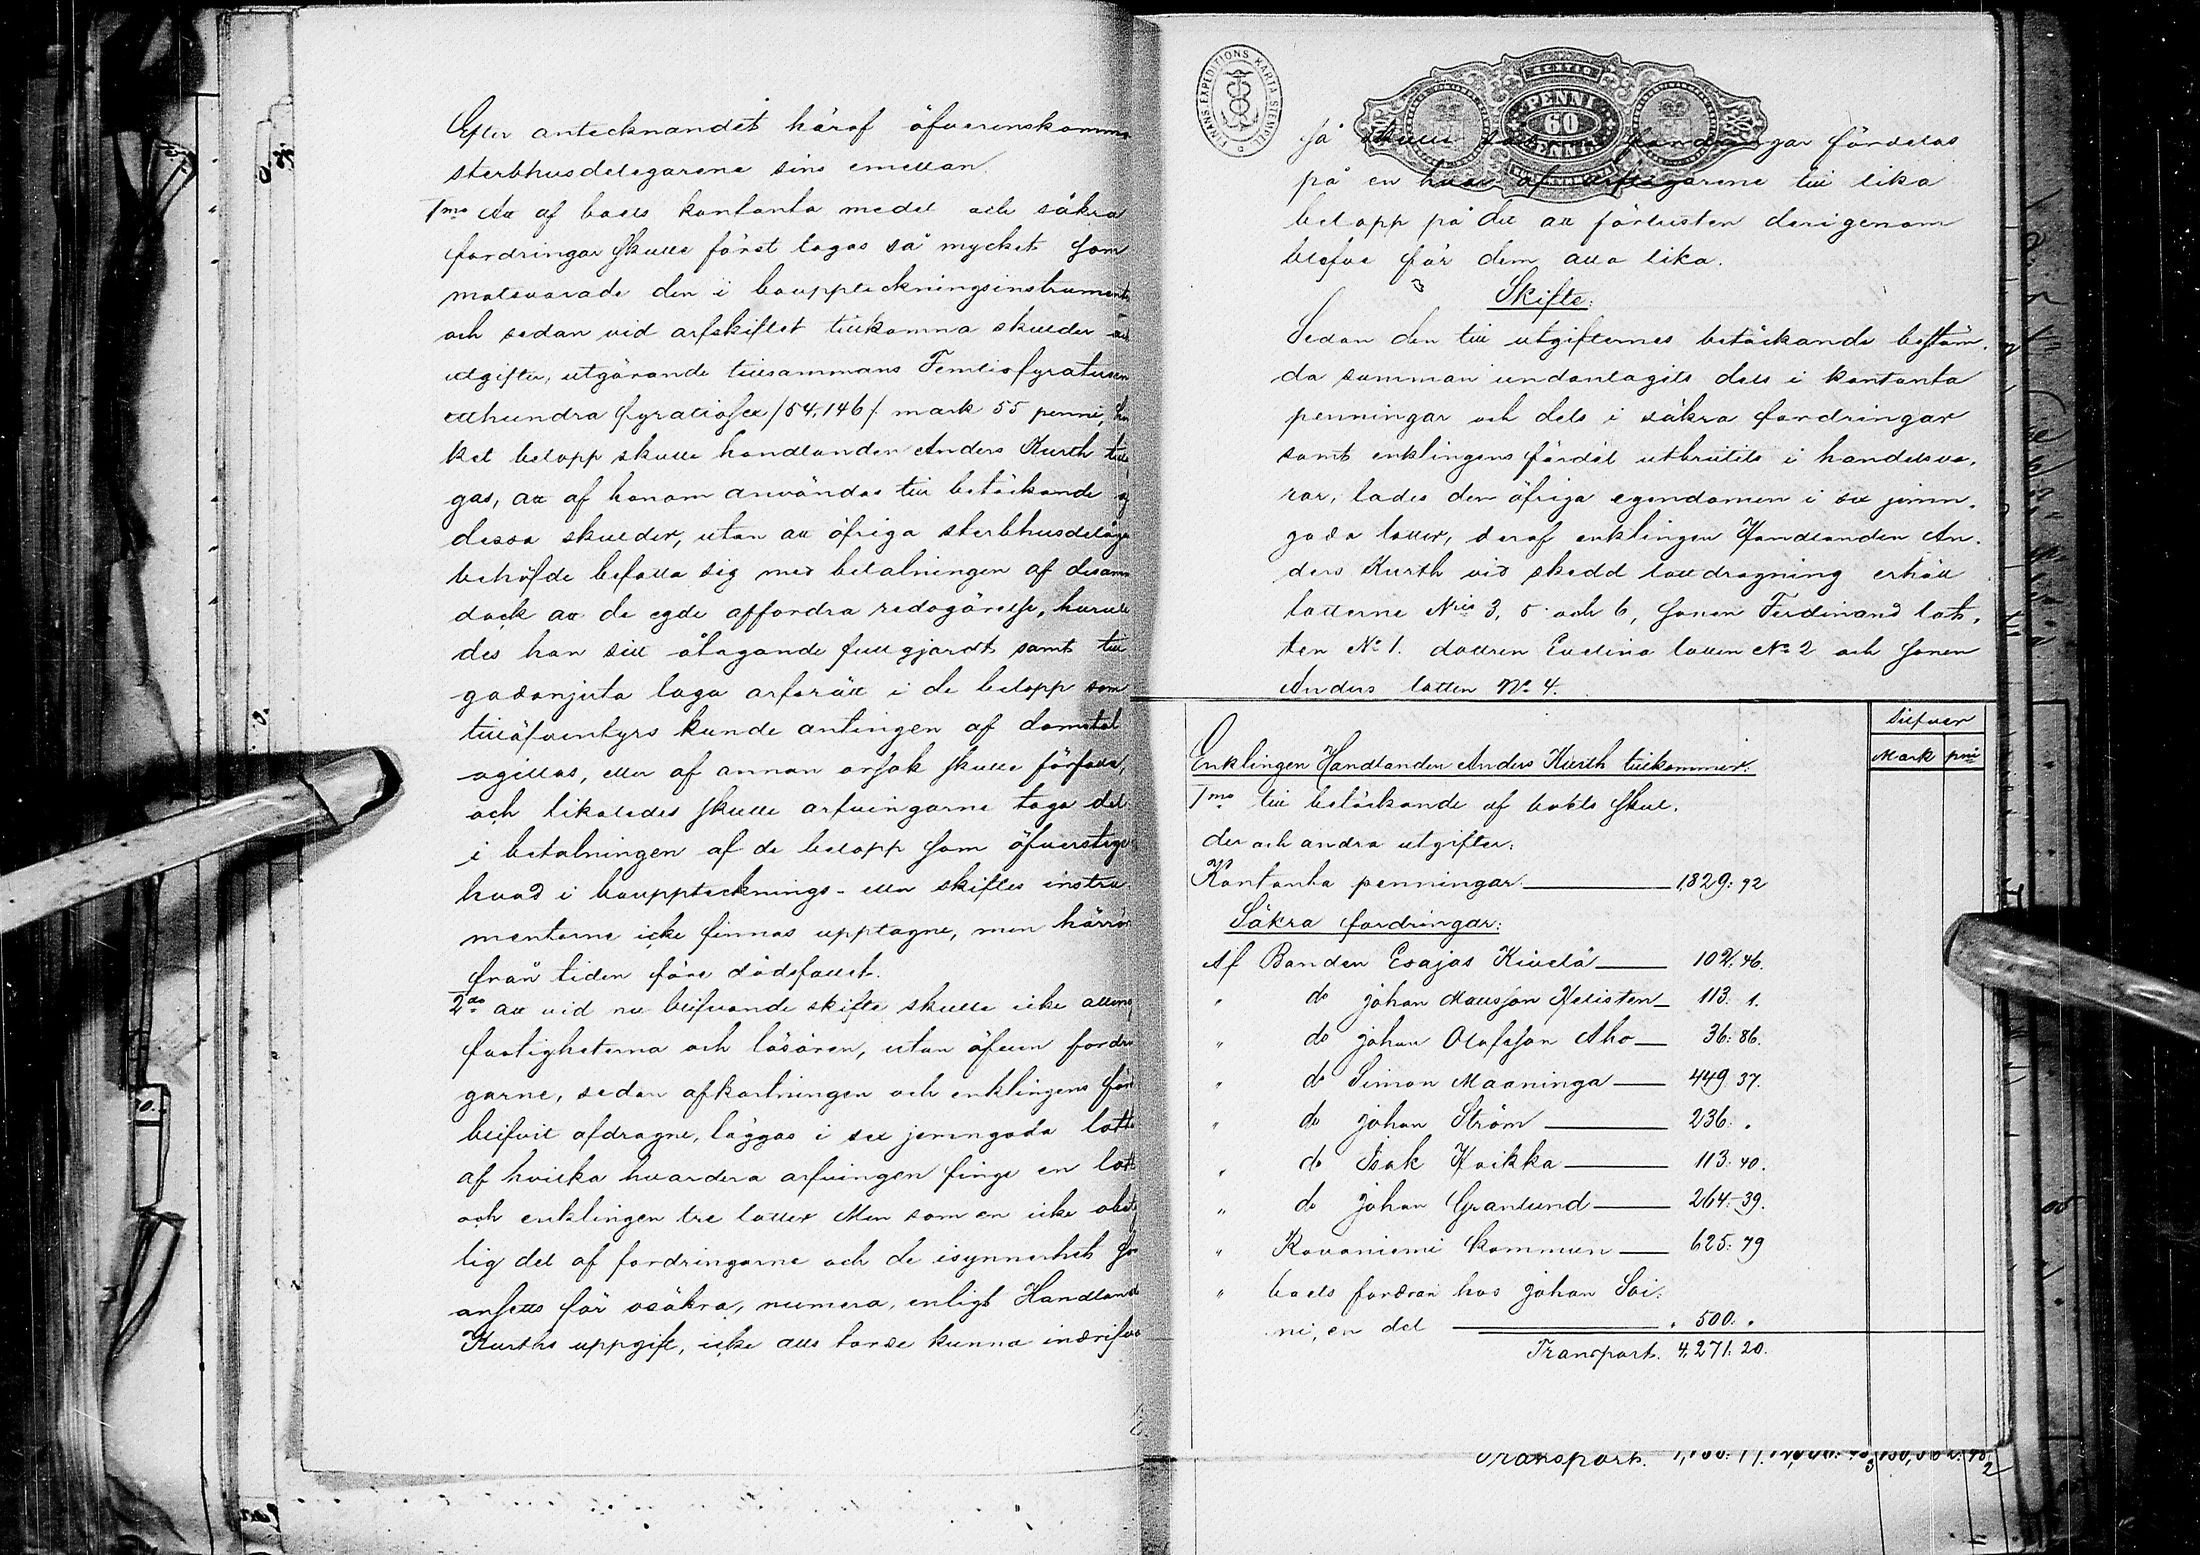 Efter antecknandet häraf öfverenskommo
sterbhusdelegarene sins emellan.
1mo Att af boets kontanta medel och säkra
fordringar skulle först tagas så mycket som
motsvarade den i bouppteckningsinstrument
och sedan vid arfskiftet tillkomna skulder och
utgifter, utgörande tillsammans Femtiofyratusen
etthundra fyratiosex /54,146/. mark 55 penni,
ket belopp skulle handlanden Anders Kurth till
gas, att af honom användas till betäckande af
dessa skulder, utan att öfriga sterbhusdeläga
behöfde befatta sig med betalningen af desam
dock att de egde affordra redogörelse, hurule
des han sitt åtagande fullgjordt samt till
godonjuta laga arfsrätt i de belopp som
tilläfventyrs kunde antingen af domstol
ogillas, eller af annan orsak skulle förfalla,
och likaledes skulle arfvingarne taga del
i betalningen af de belopp som öfverstige
hvad i bouppteknings- eller skiftes instru
menterne icke finnas upptagne, men härrör
från tiden före dödsfallet.
2do att vid nu blifvande skifte skulle icke allenas
fastigheterna och lösören, utan öfven fordrin
garne, sedan afkortningen och enklingens för
blifvit afdragne, läggas i sex jemngoda lott
af hvilka hvardera arfvingen finge en lott
och enklingen tre lotter Men som en icke obety
lig del af fordringarne och de isynnerhet so
ansetts för osäkra, numera, enligt Handland
Kurths uppgift, icke alls torde kunna indrifva
FINANS.EXPEDITIONS KARTA.STEMPEL
PENNI
60
så skulle fordringar fördelas
på en hvar af arftagarene till lika
belopp på det att förlusten derigenom
blefve för dem alla lika.
Skifte:
Sedan den till utgifternes betäckande bestäm,
da summan undantagits dels i kontanta
penningar och dels i säkra fordringar
samt enklingens fördel utbrutits i handelsva,
ror, lades den öfriga egendomen i sex jemn,
goda lotter, deraf enklingen Handlanden An,
ders Kurth vid skedd lottdragning erhöll
lotterne Nris 3, 5 och 6, sonen Ferdinand lot,
ten No 1. dottren Evelina lotten No 2 och sonen
Anders lotten No 4.
Silfver
Mark pni
Enklingen Handlanden Anders Kurth tillkommer:
1mo till betäckande af boets skul,
der och andra utgifter:
Kontanta penningar 1,829: 92
Säkra fordringar:
Af Bonden Esajas Kivelä 102: 46.
" do Johan Mattsson Helisten 113: 1.
" do Johan Olofsson Aho 36: 86.
" do Simon Maaninga 449 37.
" do Johan Ström 236: .
" do Isak Koikka 113: 40.
" do Johan Granlund 264: 39.
" Rovaniemi kommun 625: 79
" boets fordran hos Johan Soi:
ni, en del . 500: .
Transport. 4,271: 20.
Transport.